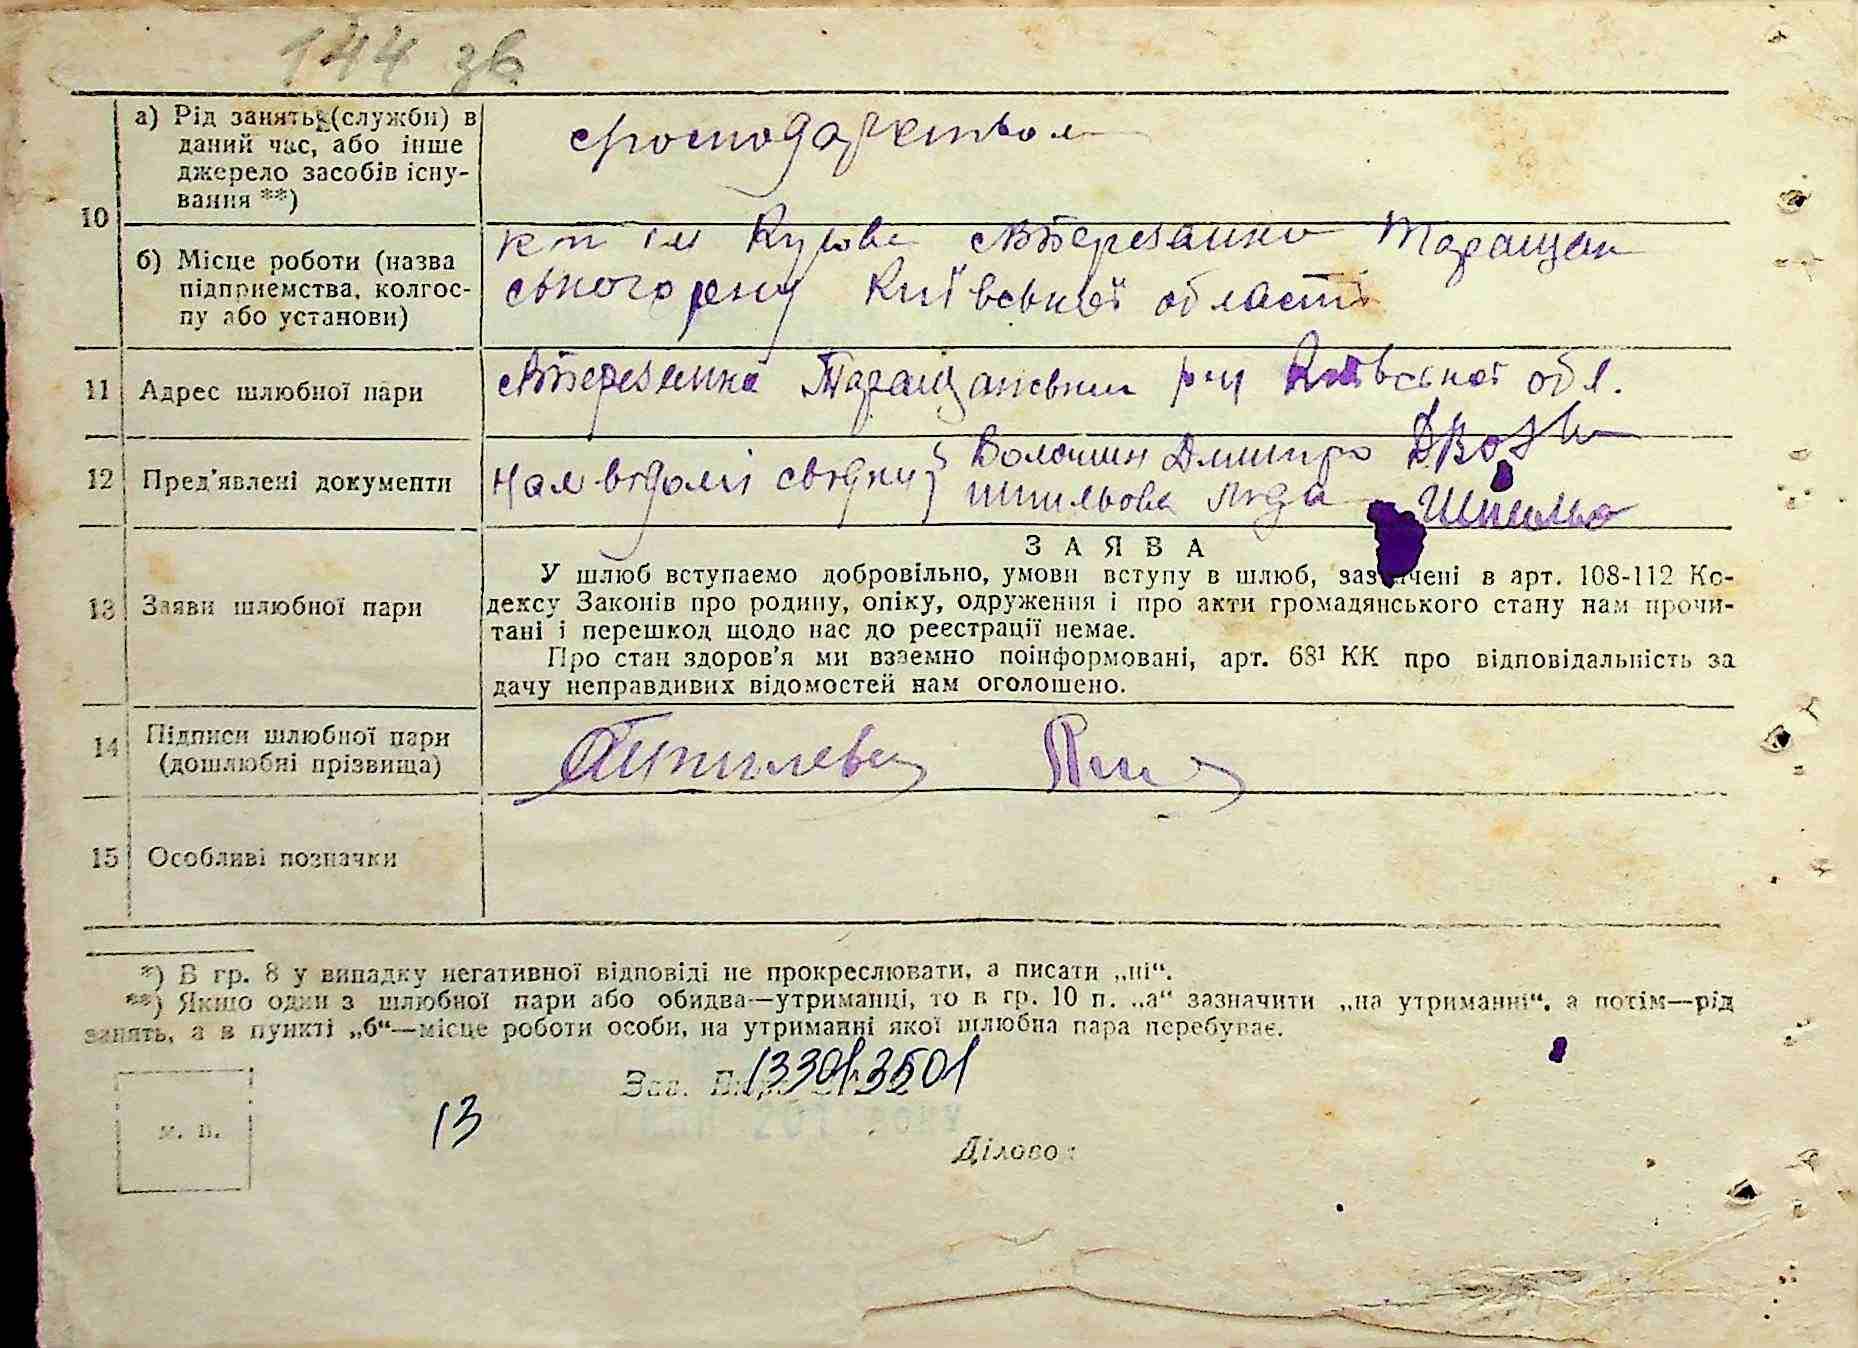 144 зв
10
а) Рід занять (служби) в
даний час, або інше
джерело засобів існу-
вання **)
господарством
б) Місце роботи (назва
підприємства, колгос-
пу або установи)
кп ім Кірова Березанка Таращан
ського рену Київської області
11 Адрес шлюбної пари
Березанка Таращанський р-н Київської обл.
12 Пред'явлені документи
Нам відомі свідки Волошин Дмитро
Шпильова Ліда
13 Заяви шлюбної пари
ЗАЯВА
У шлюб вступаемо добровільно, умови вступу в шлюб, зазначені в арт. 108-112 Ко-
дексу Законів про родину, опіку, одруження і про акти громадянського стану нам прочи-
тані і перешкод щодо нас до реєстрації немає.
Про стан здоров'я ми взаємно поінформовані, арт. 68¹ КК про відповідальність за
дачу неправдивих відомостей нам оголошено.
14 Підписи шлюбної пари
(дошлюбні прізвища)
15 Особливі позначки
*) В гр. 8 у випадку негативної відповіді не прокреслювати, а писати „ні“.
**) Якщо один з шлюбної пари або обидва—утриманці, то в гр. 10 п. „а“ зазначити „на утриманні“, а потім—рід
занять, а в пункті „б“—місце роботи особи, на утриманні якої шлюбна пара перебуває.
Зав. 133013501
13
м. п.
Діловод